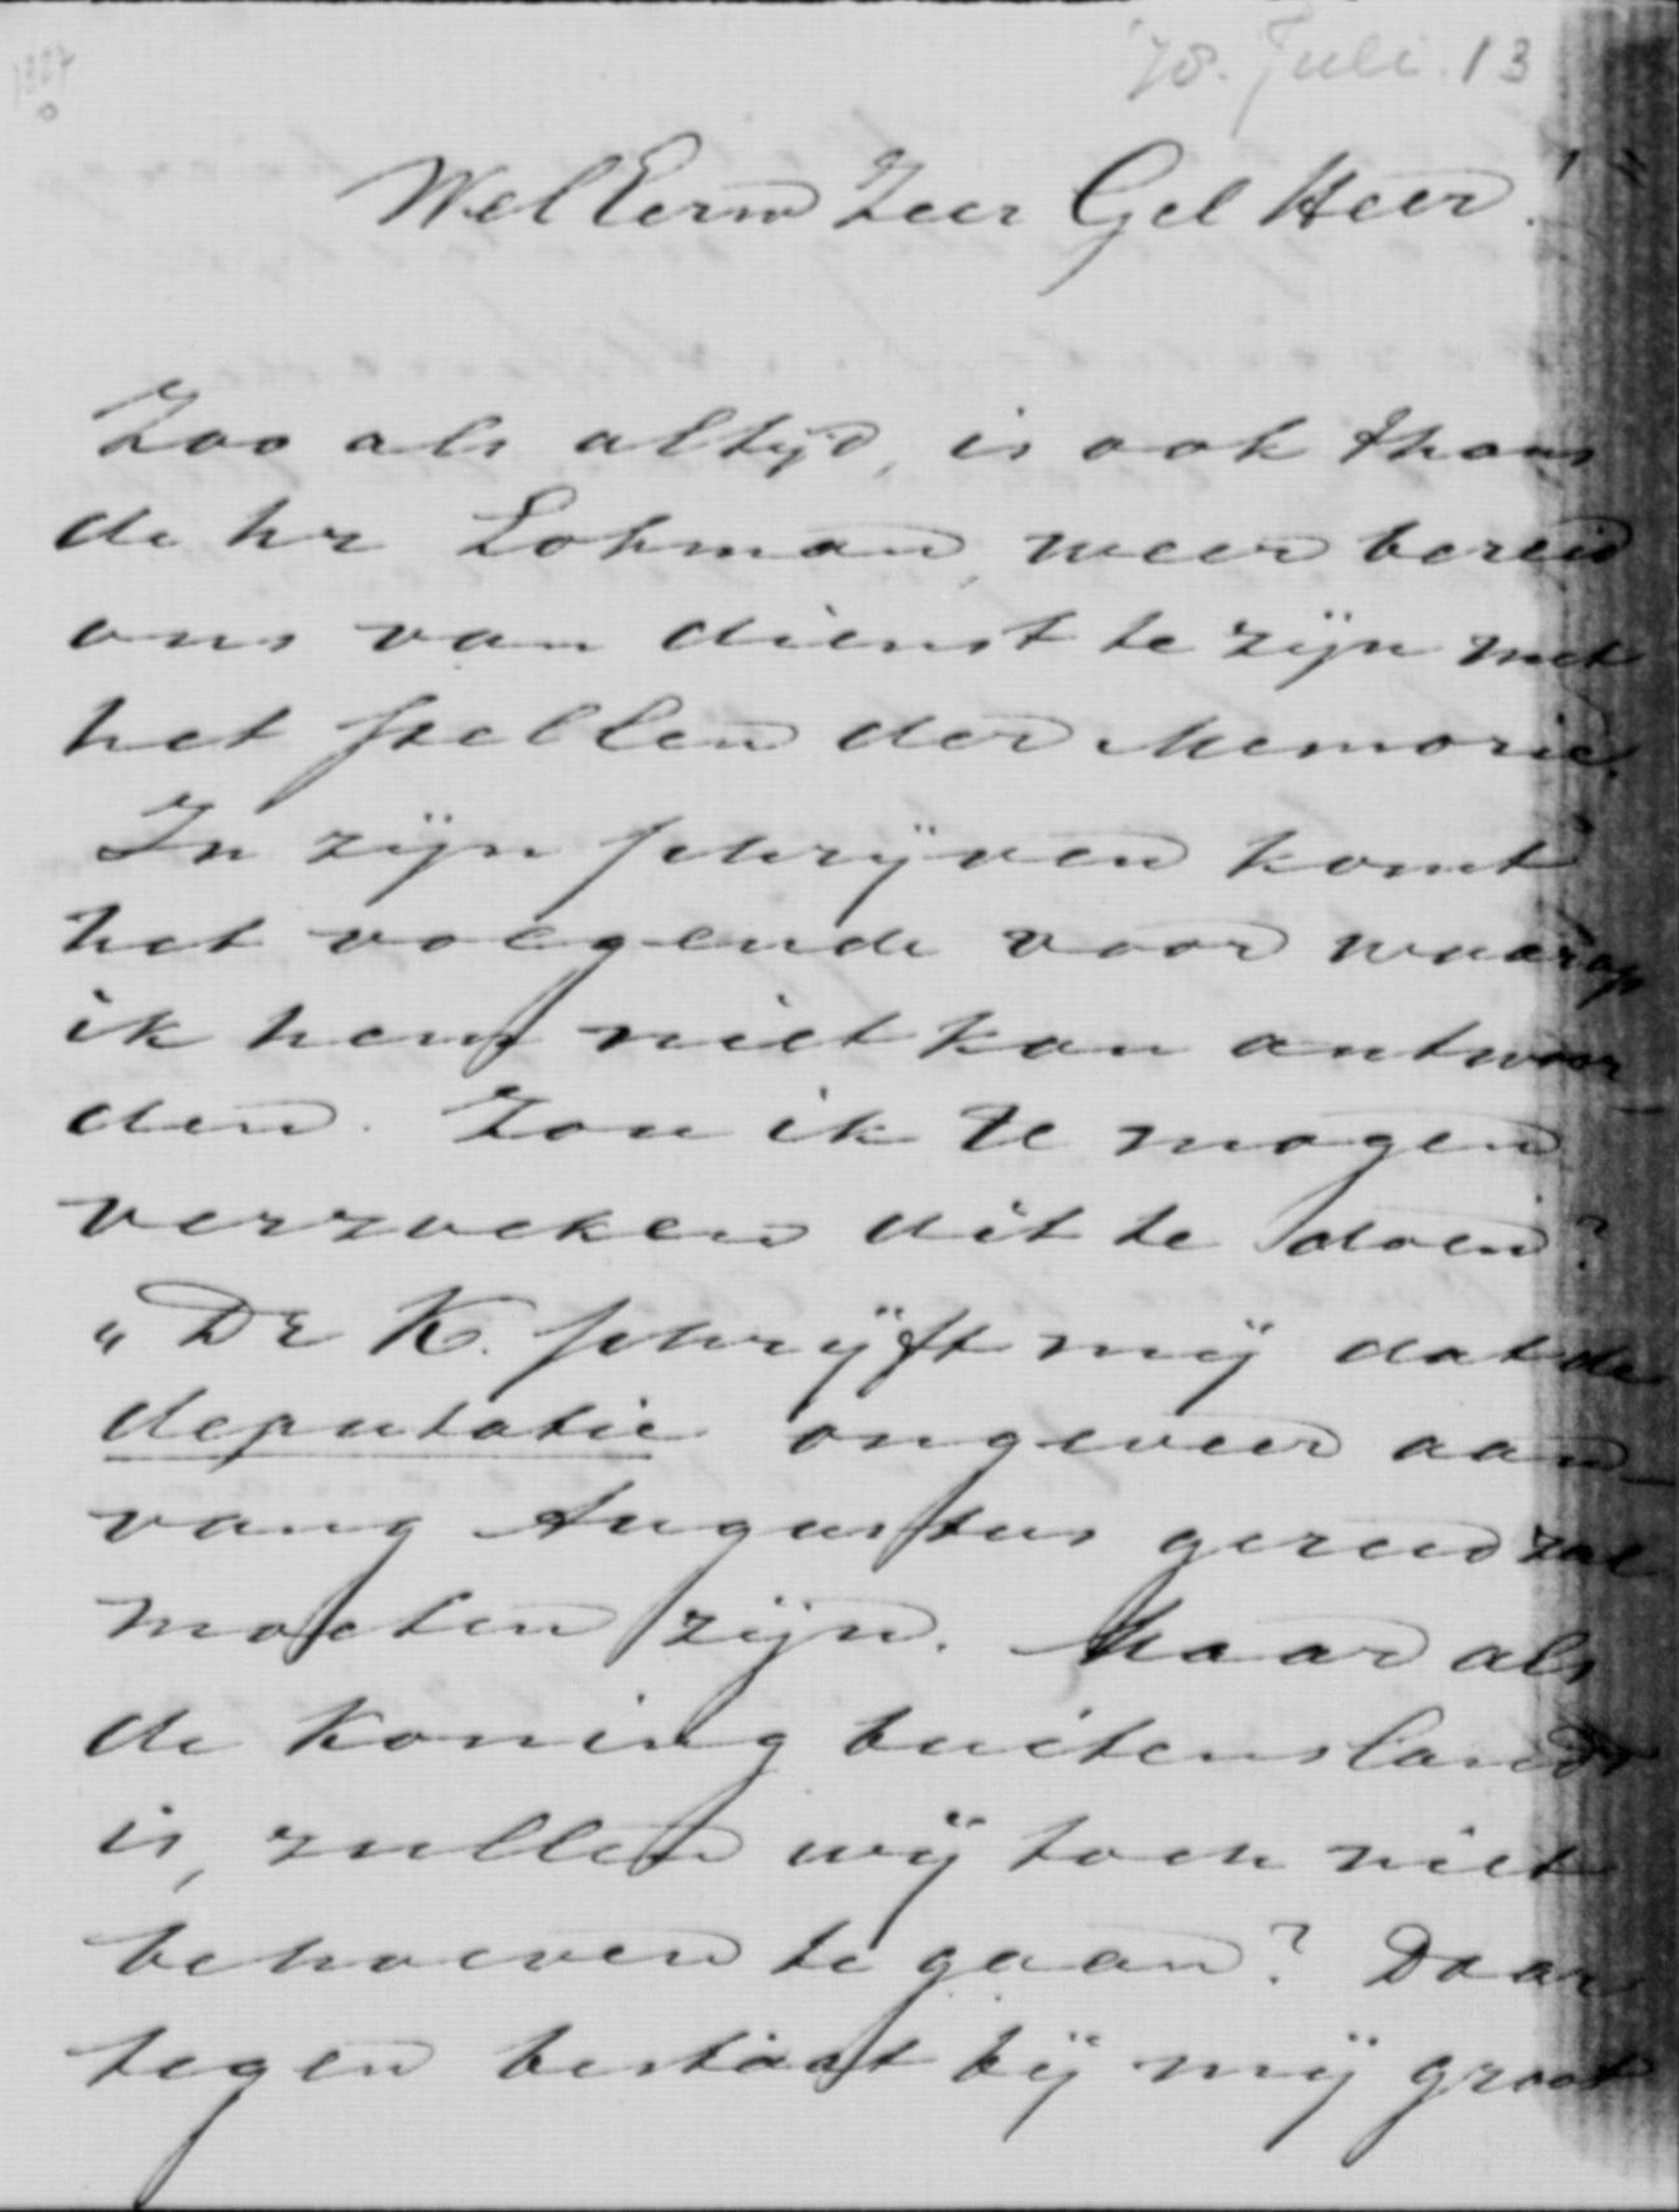 '78. Juli. 13
WelEerw Zeer Gel Heer.
Zoo als altijd, is ook thans
de hr Lohman, weer bereid
ons van dienst te zijn met
het stellen der Memorie.
In zijn schrijven komt
het volgende voor waarop
ik hem niet kan antwoor
den. Zou ik U mogen
verzoeken dit te doen?
"Dr K. schrijft mij dat de
deputatie ongeveer aan-
vang Augustus gereed zal
moeten zijn. Maar als
de Koning buitenslands
is, zullen wij toch niet
behoeven te gaan? Daar
tegen bestaat bij mij groot